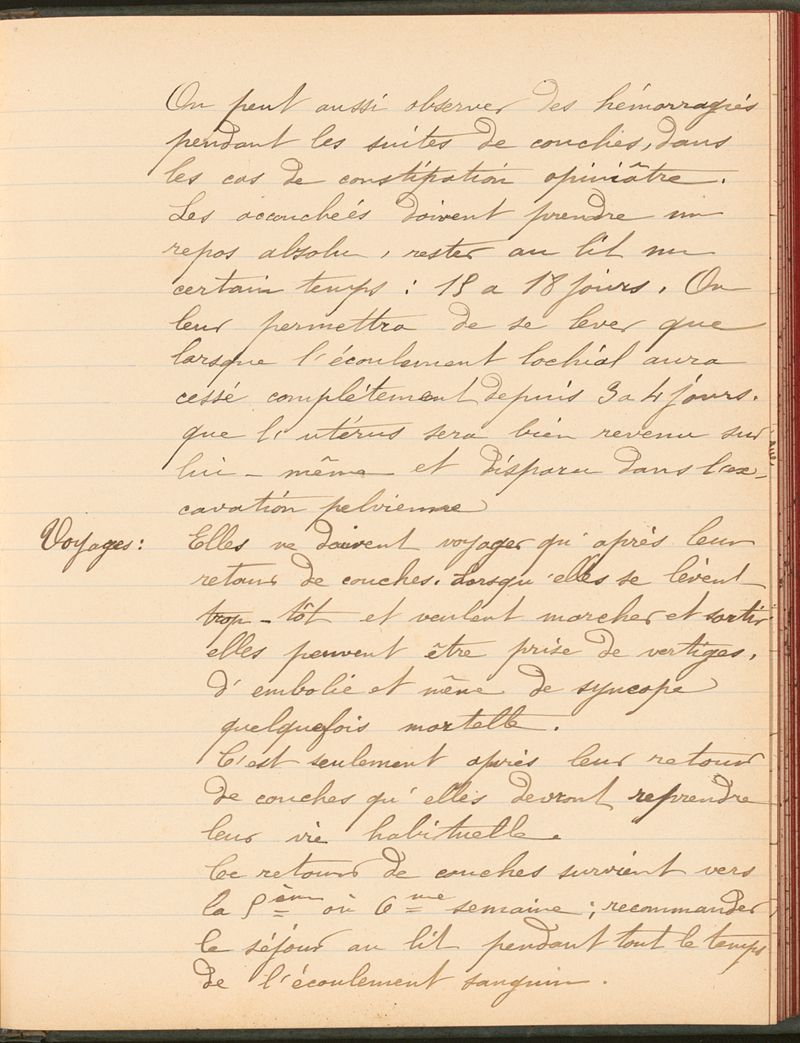 On peut aussi observer des hémorragiés
pendant les suites de couches, dans
les cas de constipation opiniâtre.
Les accouchées doivent prendre un
repos absolu, rester au lit un
certain temps : 15 a 18 jours. On
leur permettra de se lever que
lorsque l'écoulement lochial aura
cessé complétement depuis 3 a 4 jours.
que l'utérus sera bien revenu sur
lui-même et disparu dans l'ex-
cavation pelvienne
Voyages: Elles ne doivent voyager qu'après leur
retour de couches. Lorsqu'elles se lèvent
trop-tôt et veulent marcher et sortir
elles peuvent être prise de vertiges,
d'embolie et même de syncope
quelquefois mortelle.
C'est seulement après leur retour
de couches qu'elles devront reprendre
leur vie habituelle.
Ce retour de couches survient vers
la 5ème ou 6me semaine ; recommander
le séjour au lit pendant tout le temps
de l'écoulement sanguin.